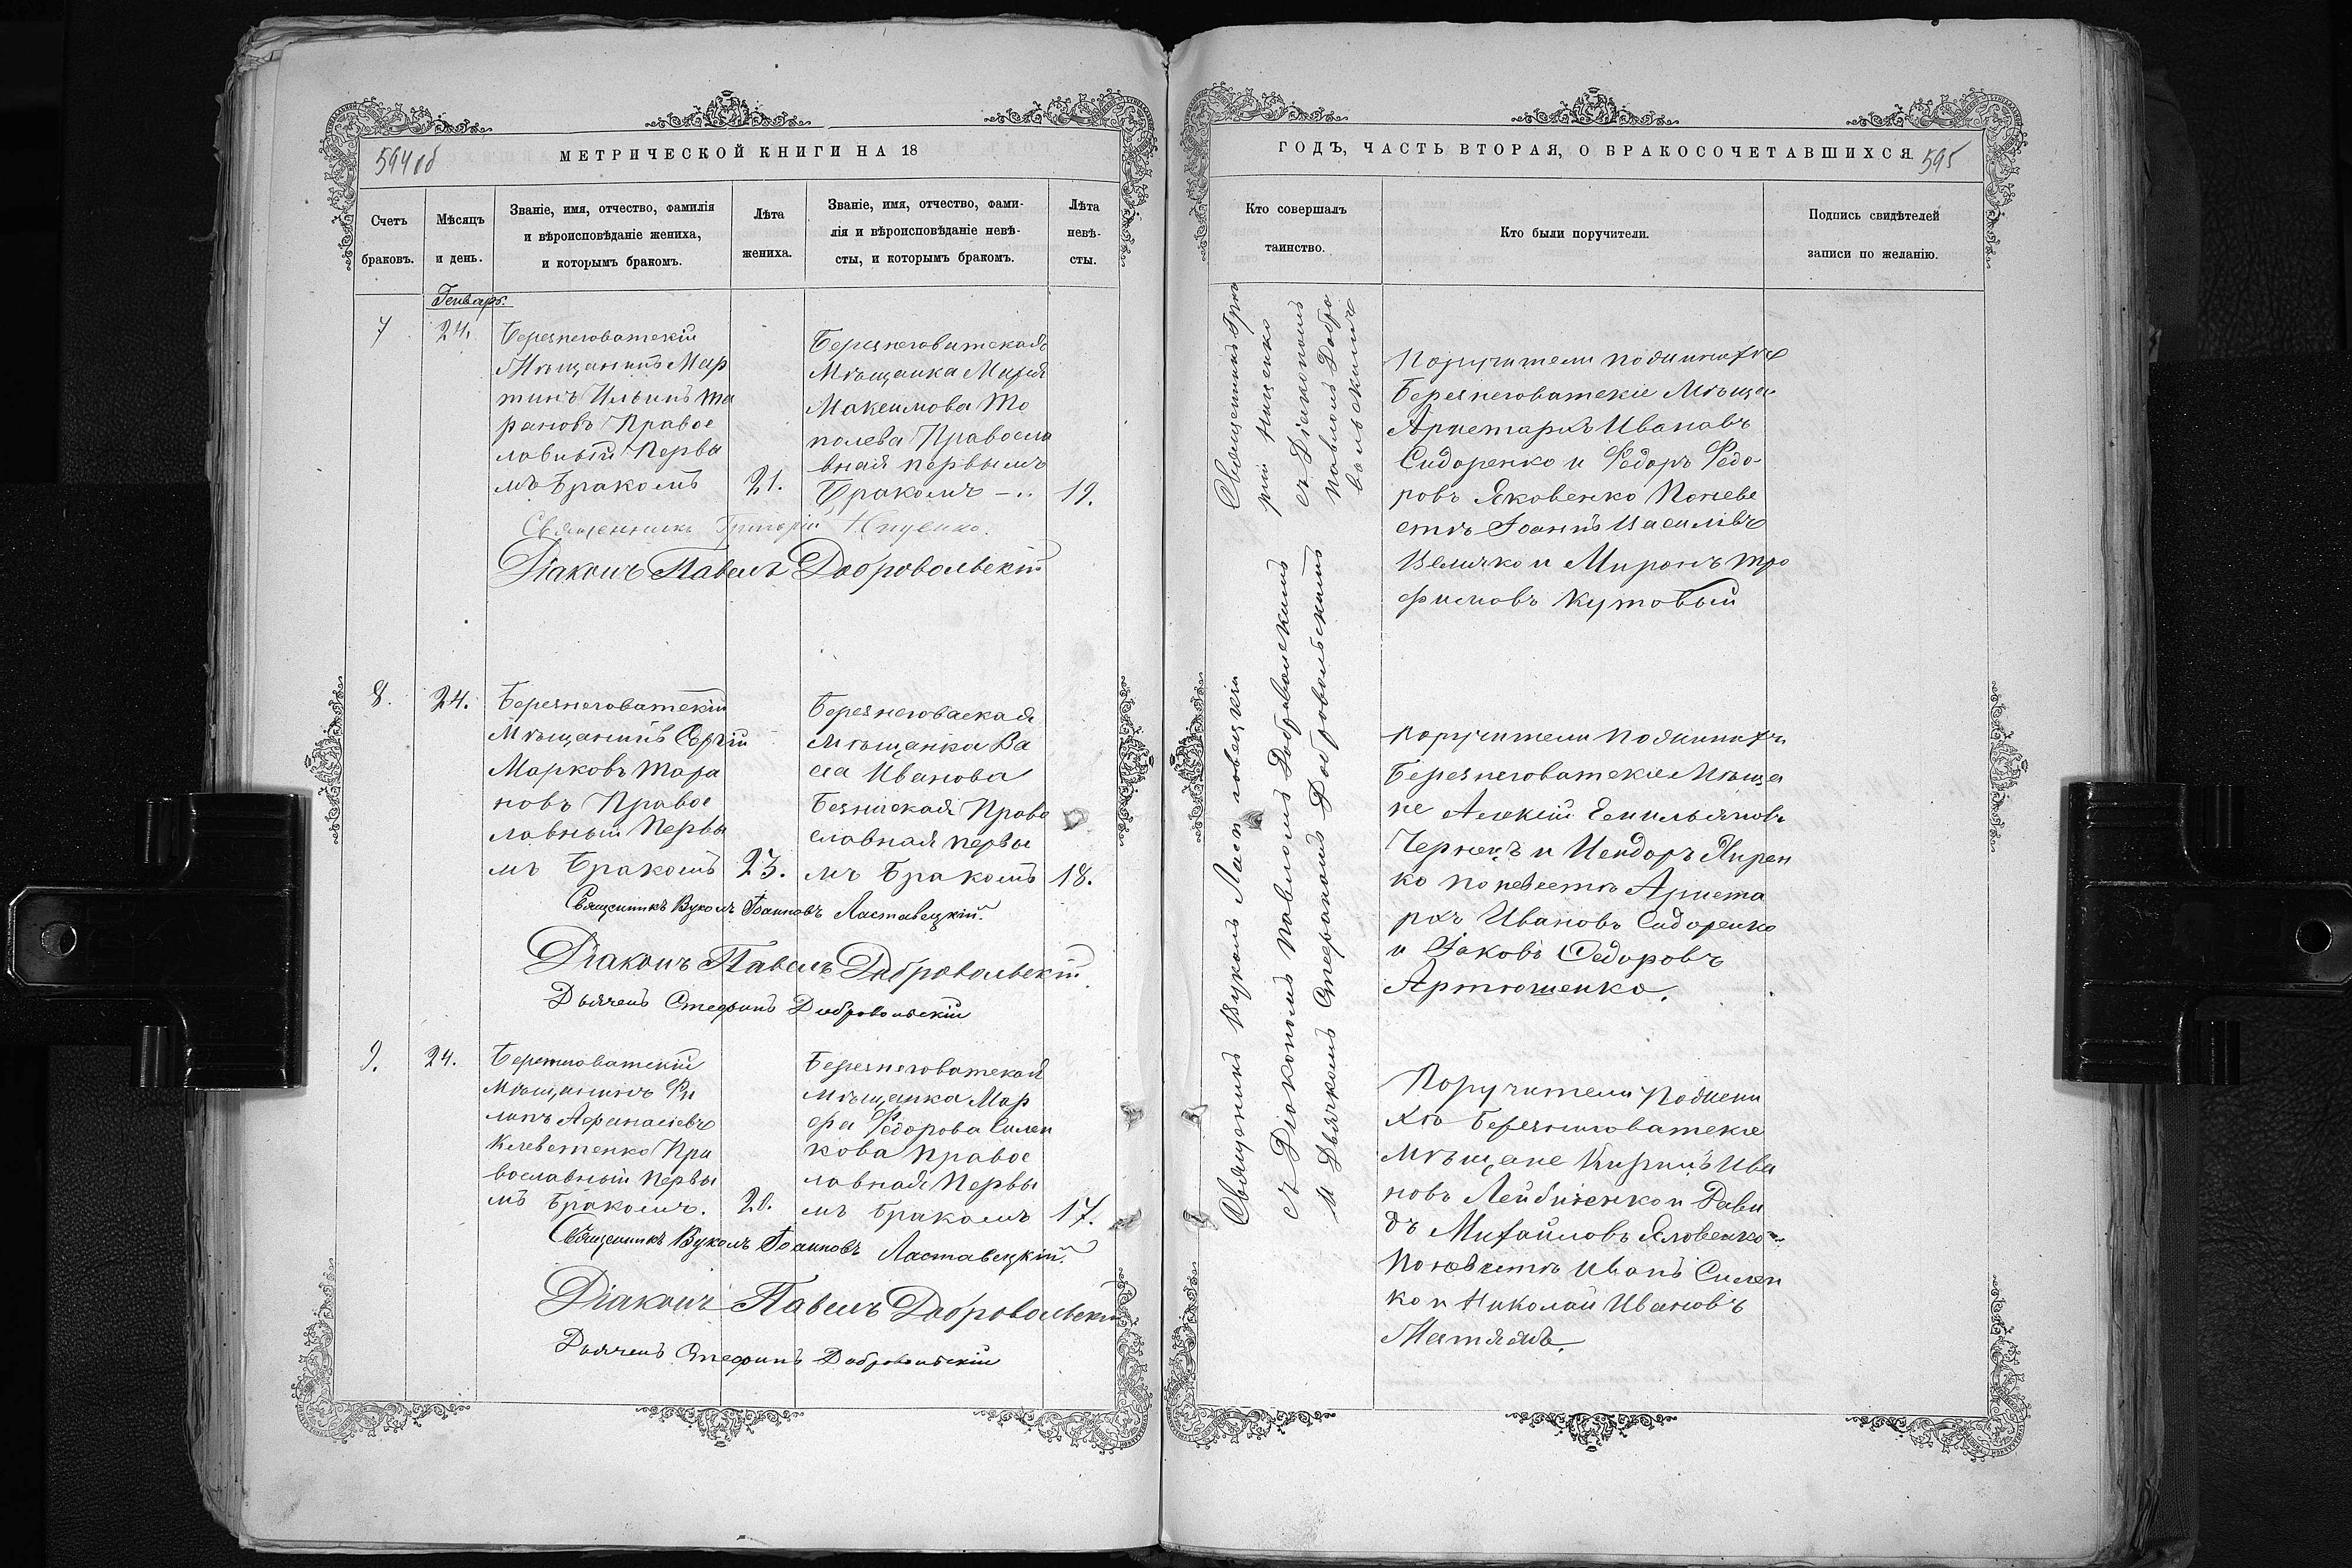 594 об
МЕТРИЧЕСКОЙ КНИГИ НА 18
Счетъ
браковъ.
Мѣсяцъ
и день.
Званіе, имя, отчество, фамилія
и вѣроисповѣданіе жениха,
и которымъ бракомъ.
Лѣта
жениха.
Званіе, имя, отчество, фами-
лія и вѣроисповѣданіе невѣ-
сты, и которымъ бракомъ.
Лѣта
невѣ-
сты.
Генварь.
7
24.
Березнеговатскій
Мѣщанинъ Мар
тинъ Ильинъ Та
рановъ Правос
лавный Первы
мъ Бракомъ
21.
Березнеговатская
Мѣщанка Марія
Максимова То
полева Правосла
вная первымъ
Бракомъ
19.
Священникъ Григорій
Діаконъ Павелъ Добровольскій
8.
24.
Березнеговатскій
Мѣщанинъ Сергій
Марковъ Тара
новъ Правос
лавный Первы
мъ Бракомъ
23.
Березнеговаская
Мѣщанка Ва
са Иванова
Православная первы
мъ Бракомъ
18.
Священникъ Вуколъ Іоанновъ Ластавецкій.
Діаконъ Павелъ Добровольскій.
Дьячекъ Стефанъ Добровольскій
9.
24.
Березнеговатскій
Мѣщанинъ Фи
липъ Афанасіевъ
Клеветенко Пра
вославный Первы
мъ Бракомъ.
20.
Березнеговатская
Мѣщанка Мар
фа Федорова Силен
кова Правос
лавная Первы
мъ Бракомъ
17.
Священникъ Вуколъ Іоанновъ Ластавецкій.
Діаконъ Павелъ Добровольскій
Дьячекъ Стефанъ Добровольскій
ГОДЪ, ЧАСТЬ ВТОРАЯ, О БРАКОСОЧЕТАВШИХСЯ.
595
Кто совершалъ
таинство.
Кто были поручители.
Подпись свидѣтелей
записи по желанію.
Священникъ Григо
рій
съ Діакономъ
Павломъ Добро
вольскимъ
Поручители по женихѣ
Березнеговатскіе Мѣща
Аристархъ Ивановъ
Сидоренко и Федоръ Федо-
ровъ Яковенко По неве
стѣ Іоаннъ Василівъ
Величко и Миронъ Тро
фимовъ Кутовый
Священникъ Вуколъ Ластовецкій
съ Діакономъ Павломъ Добровольскимъ
и Дьячкомъ Стефаномъ Добровольскимъ
Поручители По женихѣ
Березнеговатскіе Мѣща
не Алексій Емильяновъ
Чернецъ и
ко По невестѣ Ариста
рхъ Ивановъ Сидоренко
и Іаковъ Федоровъ
Артюшенко.
Поручители По жени
хѣ Березнеговатскіе
Мѣщане Кирилъ Ива
новъ и Дави
дъ Михайловъ Яловенко
По невестѣ Иванъ Силен
ко и Николай Ивановъ